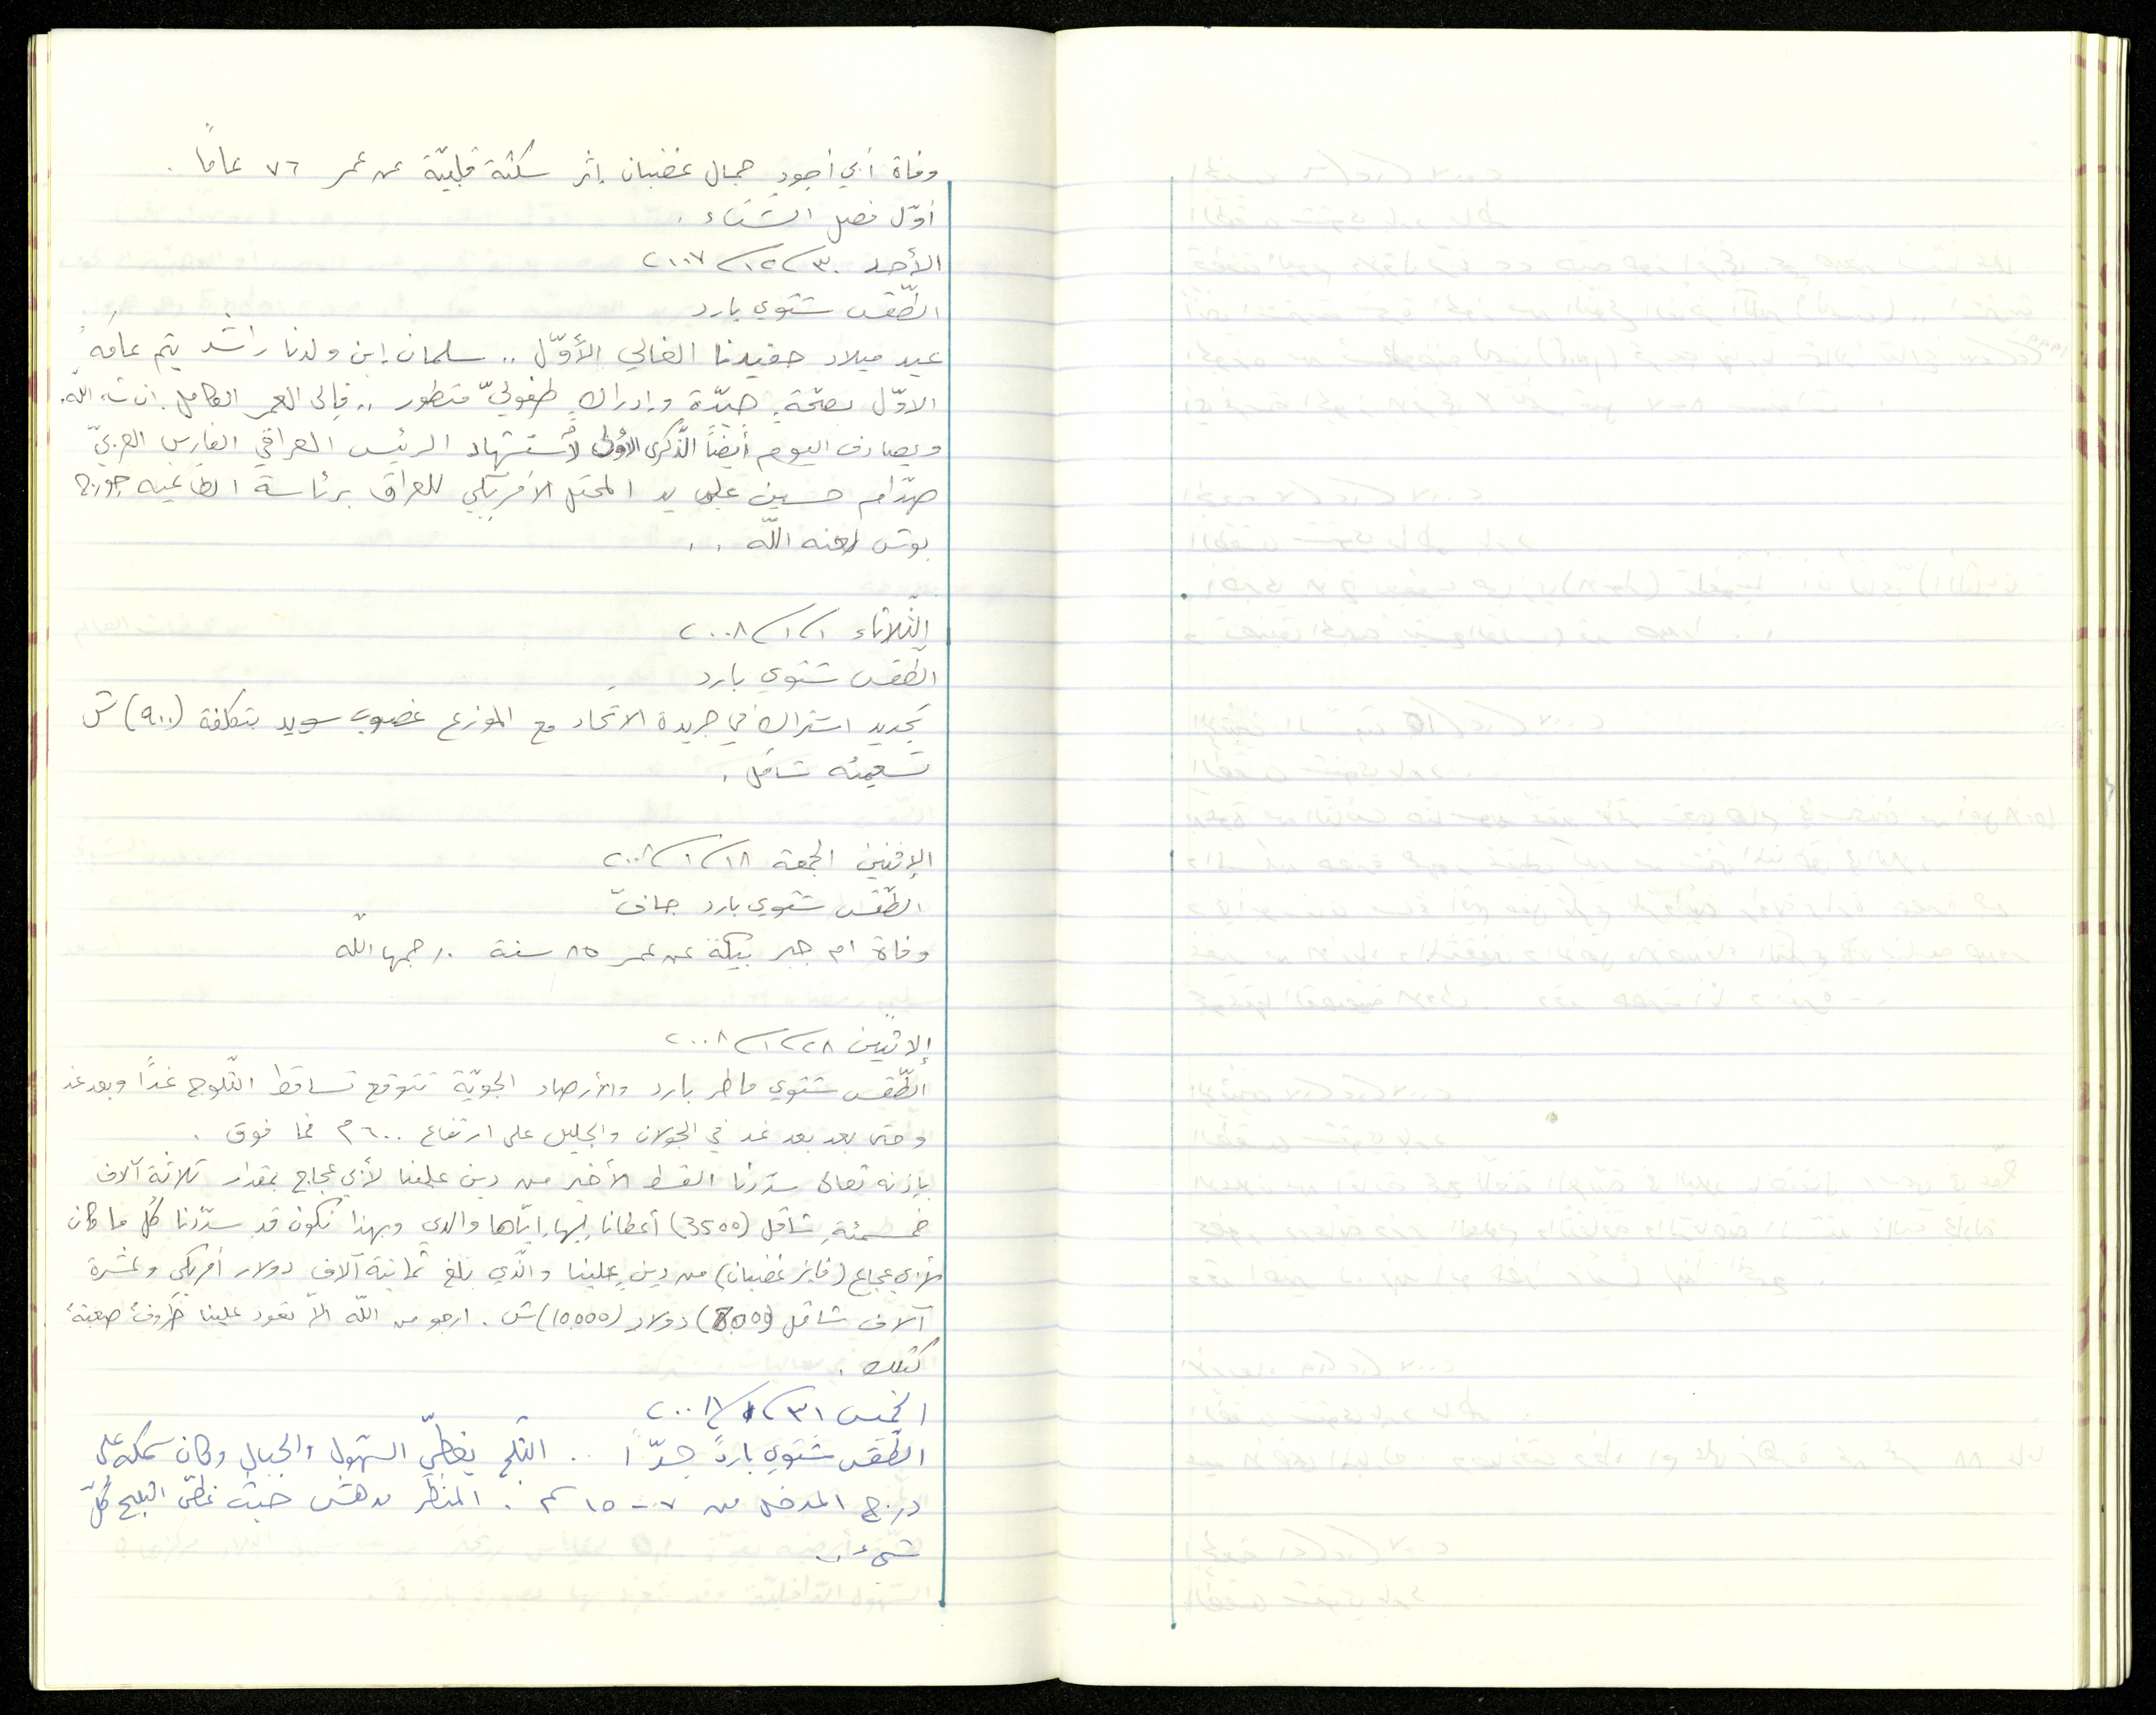 وفاة أبي أجود جمال غضبان إثر سكتة قلبيّة عن عمر ٧٦ عامًا .
أوّل فصل الشتاء .
الأحد ٣٠/١٢/٢٠٠٧
الطّقس شتوي بارد
عيد ميلاد حفيدنا الغالي الأوّل .. سلمان إبن ولدنا راشد يتم عامَهُ
الاوّل بصحّة جيّدة وإدراك طفوليّ متطور .. فإلى العمر الكامل ان شاء الله.
ويصادف اليوم أيضًا الذّكرى الأولى لأستشهاد الرئيس العراقي الفارس العربيّ
صدّام حسين على يد المحتل الأمريكي للعراق برئاسة الطاغيه جورج
بوش لعنه اللّه ..
الثّلاثاء ١/١/٢٠٠٨
الطّقس شتوي بارد
تجديد اشتراك في جريدة الاتحاد مع الموزع غصوب سويد بتكلفة (٩٠٠) ش
تسعمئه شاقل .
الإثنين الجمعة ١٨/١/٢٠٠٨
الطّقس شتوي بارد جافّ
وفاة ام جبر بيكة عن عمر ٨٥ سنة . رحمها اللّه
إلاثنين ٢٨/١/٢٠٠٨
الطّقس شتوي ماطر بارد والأرصاد الجويّة تتوقع تساقط الثلوج غدًا وبعد غد
وحتى بعد بعد غد في الجولان والجليل على ارتفاع ٦٠٠م فما فوق .
بإذنه تعالى سدّدنا القسط الأخير من دين علينا لأبي عجاج بمقدار ثلاثة آلاف
خمسمئة شاقل (3500) أعطانا إيّاها والدي وبهذا نكون قد سدّدنا كُل ما كان
لأبي عجاج (فايز غضبان) من دينٍ علينا والّذي بلغ ثمانية آلاف دولار أمريكي وعشرة
آلاف شاقل (8000) دولار (10,000) ش . ارجو من اللّه الاّ تعود علينا ظروفٌ صعبةٌ
كتلك .
الخميس ٣١/١/٢٠٠٨
الطّقس شتوي باردٌ جدًّا .. الثلج يغطّي السّهول والجبال وكان سمكه على
درج المدخل من ٧ - ١٥ سم . المنظر مدهش حيث غطّى الثلج كُلّ
شيء ..